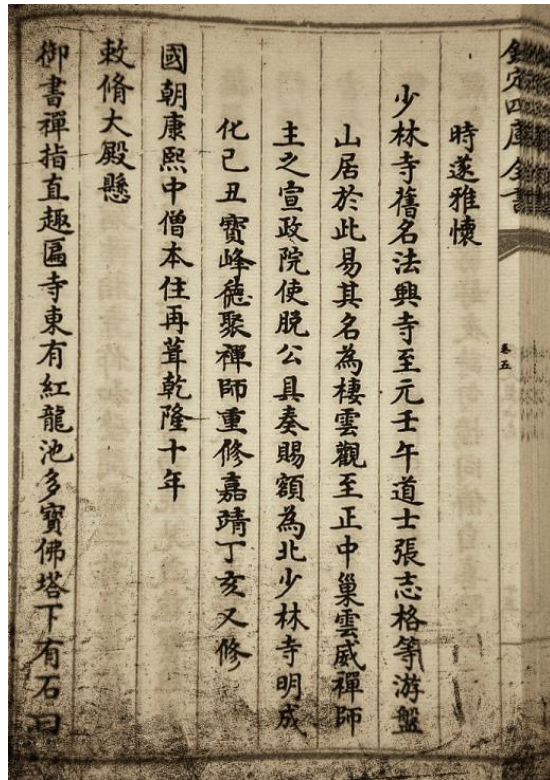 欽定四庫全書
卷五
時遂雅懷
少林寺舊名法興寺至元壬午道士張志格等游盤
山居於此易其名為棲雲觀至正中巢雲威禪師
主之宣政院使脫公具奏賜額為北少林寺明成
化己丑寶峰德聚禪師重修嘉靖丁亥又修
國朝康熙中僧本住再葺乾隆十年
敕脩大殿懸
御書禪指直趣匾寺東有紅龍池多寶佛塔下有石曰